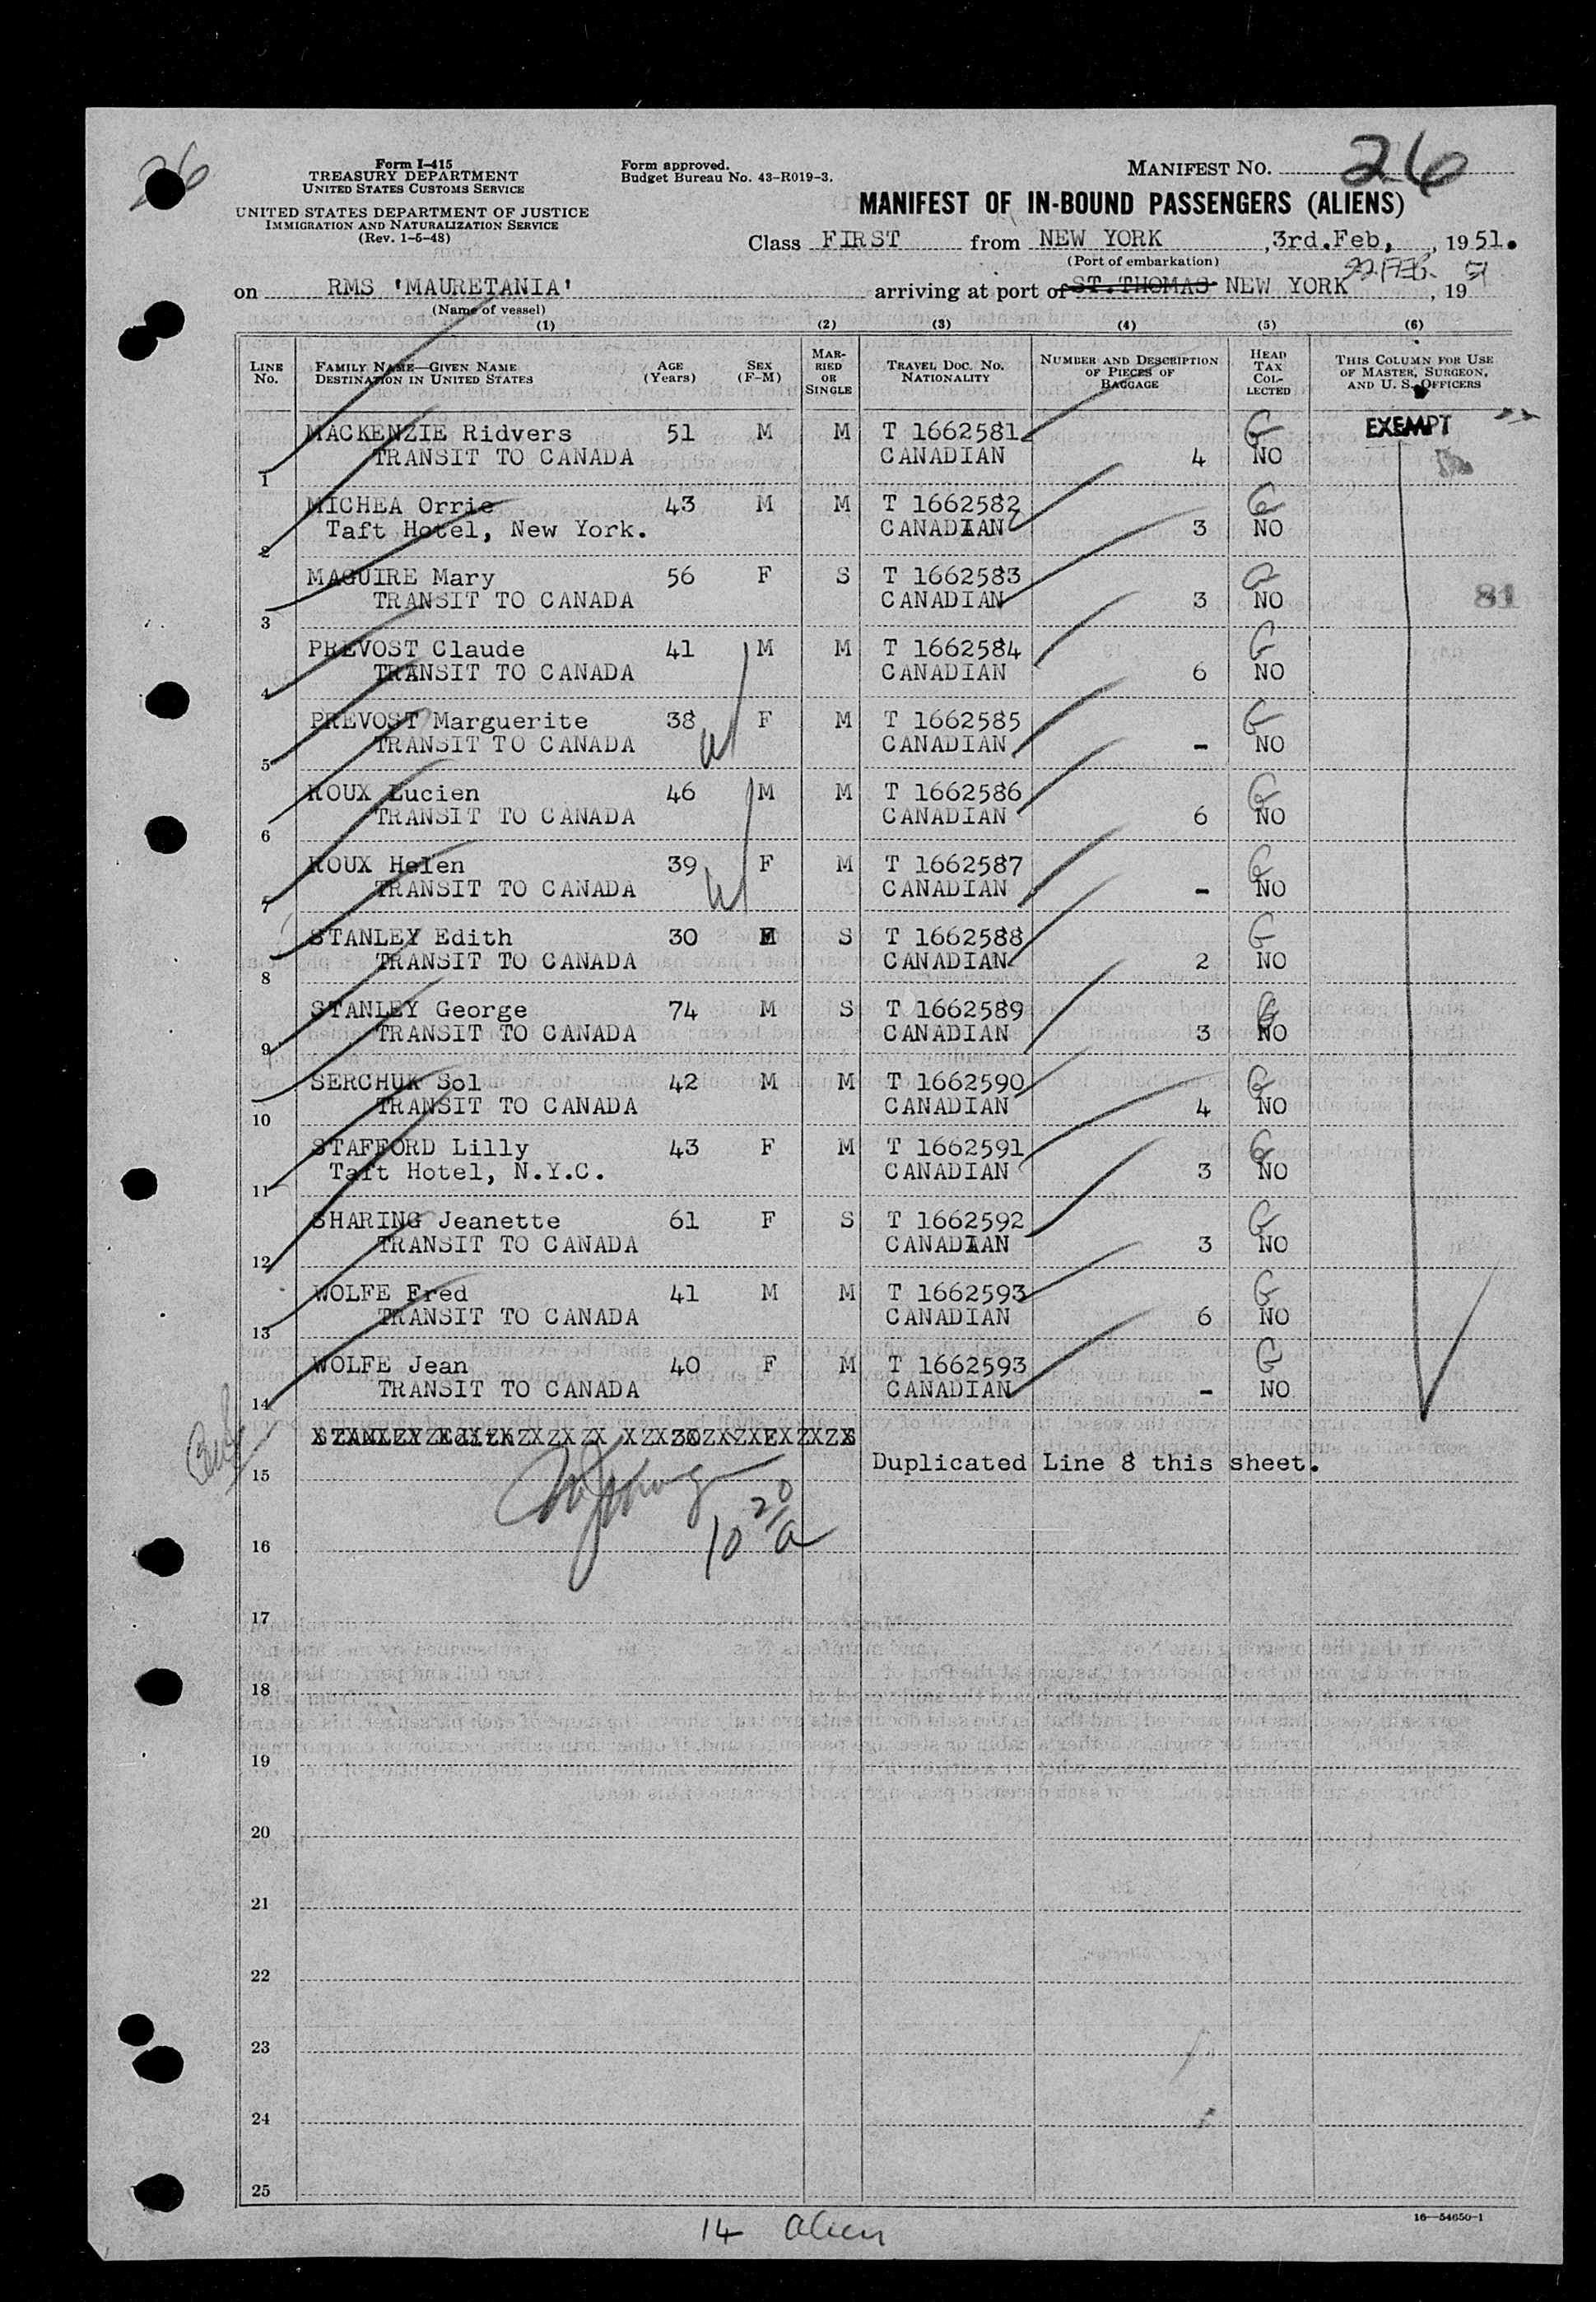 26
Form I-415
TREASURY DEPARTMENT
UNITED STATES CUSTOMS SERVICE
UNITED STATES DEPARTMENT OF JUSTICE
IMMIGRATION AND NATURALIZATION SERVICE
(Rev. 1-6-48)
Form approved.
Budget Bureau No. 43-R019-3.
MANIFEST NO. 26
MANIFEST OF IN-BOUND PASSENGERS (ALIENS)
Class FIRST from NEW YORK, 3rd.Feb, , 1951.
(Port of embarkation)
on RMS 'MAURETANIA' arriving at port of ST.THOMAS NEW YORK 22 FEB. , 1951
(Name of vessel)
(1) (2) (3) (4) (5) (6)
LINE No. FAMILY NAME—GIVEN NAME DESTINATION IN UNITED STATES AGE (Years) SEX (F-M) MARRIED OR SINGLE TRAVEL DOC. NO. NATIONALITY NUMBER AND DESCRIPTION OF PIECES OF BAGGAGE HEAD TAX COLLECTED THIS COLUMN FOR USE OF MASTER, SURGEON, AND U. S. OFFICERS
MACKENZIE Ridvers 51 M M T 1662581 G EXEMPT
1 TRANSIT TO CANADA CANADIAN 4 NO
MICHEA Orrie 43 M M T 1662582 G
2 Taft Hotel, New York. CANADIAN 3 NO
MAGUIRE Mary 56 F S T 1662583 G
3 TRANSIT TO CANADA CANADIAN 3 NO 81
PREVOST Claude 41 M M T 1662584 G
4 TRANSIT TO CANADA CANADIAN 6 NO
PREVOST Marguerite 38 F M T 1662585 G
5 TRANSIT TO CANADA CANADIAN - NO
ROUX Lucien 46 M M T 1662586 G
6 TRANSIT TO CANADA CANADIAN 6 NO
ROUX Helen 39 F M T 1662587 G
7 TRANSIT TO CANADA CANADIAN - NO
STANLEY Edith 30 F S T 1662588 G
8 TRANSIT TO CANADA CANADIAN 2 NO
STANLEY George 74 M S T 1662589 G
9 TRANSIT TO CANADA CANADIAN 3 NO
SERCHUK Sol 42 M M T 1662590 G
10 TRANSIT TO CANADA CANADIAN 4 NO
STAFFORD Lilly 43 F M T 1662591 G
11 Taft Hotel, N.Y.C. CANADIAN 3 NO
SHARING Jeanette 61 F S T 1662592 G
12 TRANSIT TO CANADA CANADIAN 3 NO
WOLFE Fred 41 M M T 1662593 G
13 TRANSIT TO CANADA CANADIAN 6 NO
WOLFE Jean 40 F M T 1662593 G
14 TRANSIT TO CANADA CANADIAN - NO
STANLEY Edith 30 F S
15 Duplicated Line 8 this sheet.
10 20/a
16
17
18
19
20
21
22
23
24
25
16—54650-1
14 Alien